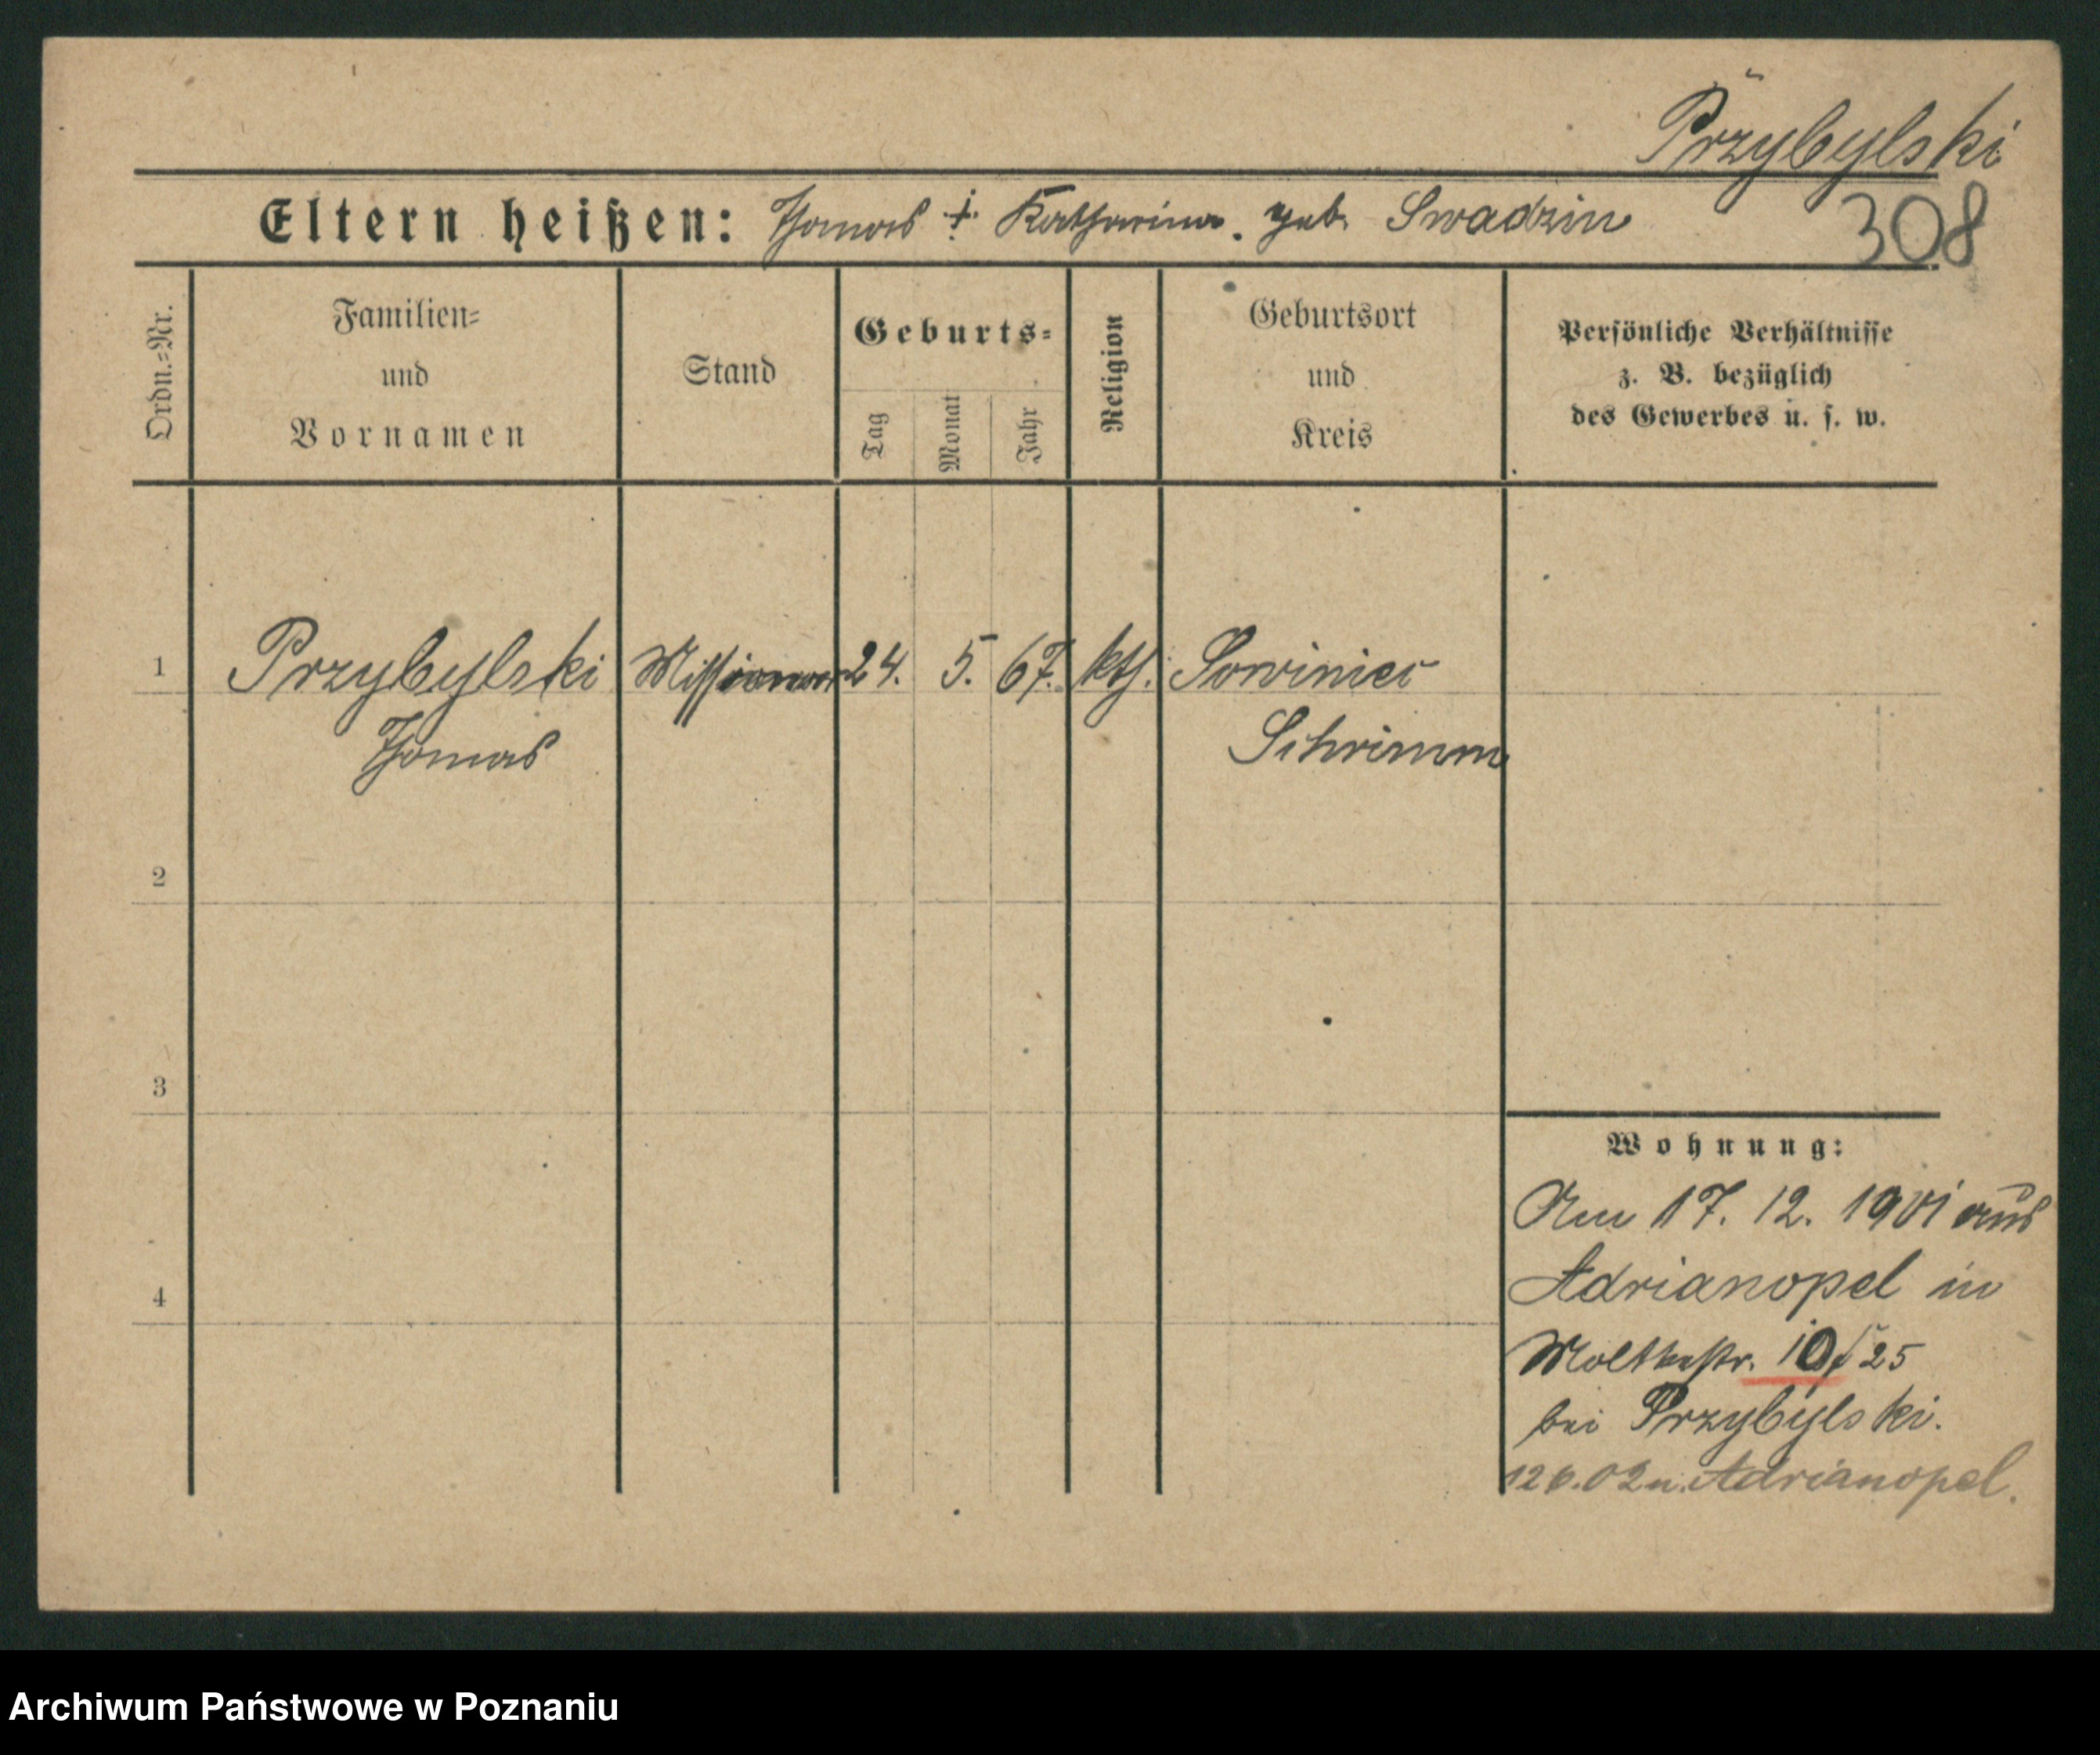 Przybylski
Eltern heißen: Thomas + Katharina. geb. Swadzin
308
Ordn.=Nr.
Familien=
und
Vornamen
Stand
Geburts=
Tag
Monat
Jahr
Religion
Geburtsort
und
Kreis
Persönliche Verhältnisse
z. B. bezüglich
des Gewerbes u. s. w.
1 Przybylski Missionar 24. 5. 67. kth. Sowiniec
Thomas Schrimm
2
3
4
Wohnung:
Am 17. 12. 1901 aus
Adrianopel in
Moltkestr. 10/25
bei Przybylski.
126.02 n. Adrianopel.
Archiwum Państwowe w Poznaniu